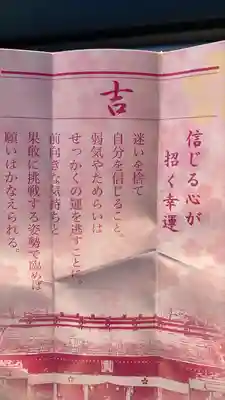 吉
信じる心が
招く幸運
迷いを捨て
自分を信じること。
弱気やためらいは
せっかくの運を逃すことに。
前向きな気持ちと
果敢に挑戦する姿勢で臨めば
願いはかなえられる。